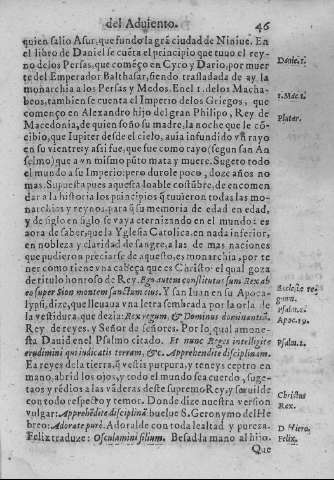 del Aduiento. 46
quien salio Asur, que fundo la grã ciudad de Niniue. En
el libro de Daniel se cuẽta el principio que tuuo el rey-
no de los Persas, que comẽço en Cyro y Dario, por muer
te del Emperador Balthasar, siendo trasladada de ay la
monarchia a los Persas y Medos. En el 1. de los Macha-
beos, tambien se cuenta el Imperio de los Griegos, que
començo en Alexandro hijo del gran Philipo, Rey de
Macedonia, de quien soño su madre, la noche que le cõ-
cibio, que Iupiter desde el cielo, auia infundido vn rayo
en su vientre y assi fue, que fue como rayo (segun san An
selmo) que a vn mismo pũto mata y muere. Sugeto todo
el mundo a su Imperio: pero durole poco, doze años no
mas. Supuesta pues aquesta loable costũbre, de encomen
dar a la historia los principios q̃ tuuieron todas las mo-
narchias y reynos, para q̃ su memoria de edad en edad,
y de siglo en siglo se vaya eternizando en el mundo: es
aora de saber, que la Yglesia Catolica, en nada inferior,
en nobleza y claridad de sangre, a las de mas naciones
que pudieron preciarse de aquesto, es monarchia, por te
ner como tiene vna cabeça que es Christo: el qual goza
de titulo honroso de Rey. Ego autem constitutus sum Rex ab
eo super Sion montem sanctum eius. Y san Iuan en su Apoca-
lypsi, dize, que lleuaua vna letra sembrada por la orla de
la vestidura, que dezia: Rex regum, & Dominus dominantiũ.
Rey de reyes, y Señor de señores. Por lo qual amone-
sta Dauid en el Psalmo citado. Et nunc Reges intelligite
erudimini qui iudicatis terram, &c. Apprehendite disciplinam.
Ea reyes de la tierra, q̃ vestis purpura, y teneys ceptro en
mano, abrid los ojos, y todo el mundo sea cuerdo, suge-
taos y rẽdios a las vãderas deste supremo Rey, y seruilde
con todo respecto y temor. Donde dize nuestra version
vulgar: Apprehẽdite disciplinã buelue S. Geronymo del He
breo: Adorate purè. Adoralde con toda lealtad y pureza.
Felix traduze: Osculamini filium. Besad la mano al hijo.
Que
Danie. 1.
1. Mac. 1.
Plutar.
Psalm. 2.
Apoc. 19.
Psalm. 2.
Christus
Rex.
D. Hiero.
Felix.